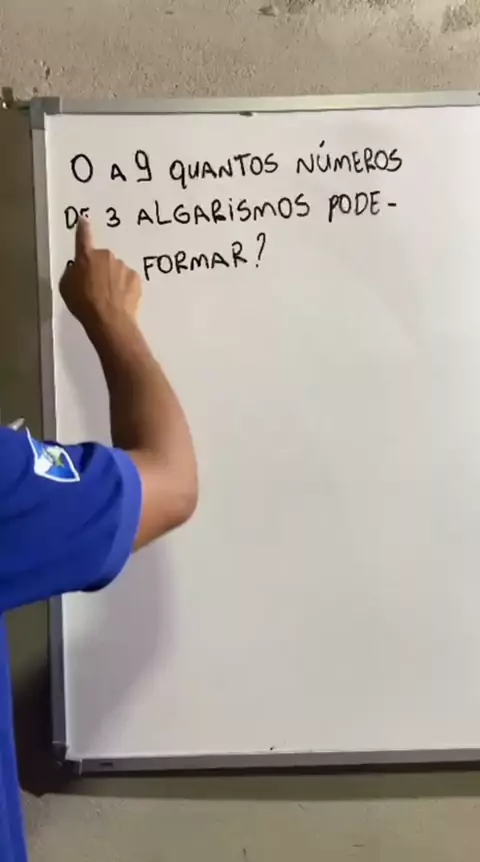 0 A 9 QUANTOS NÚMEROS
DE 3 ALGARISMOS PODE-
FORMAR?